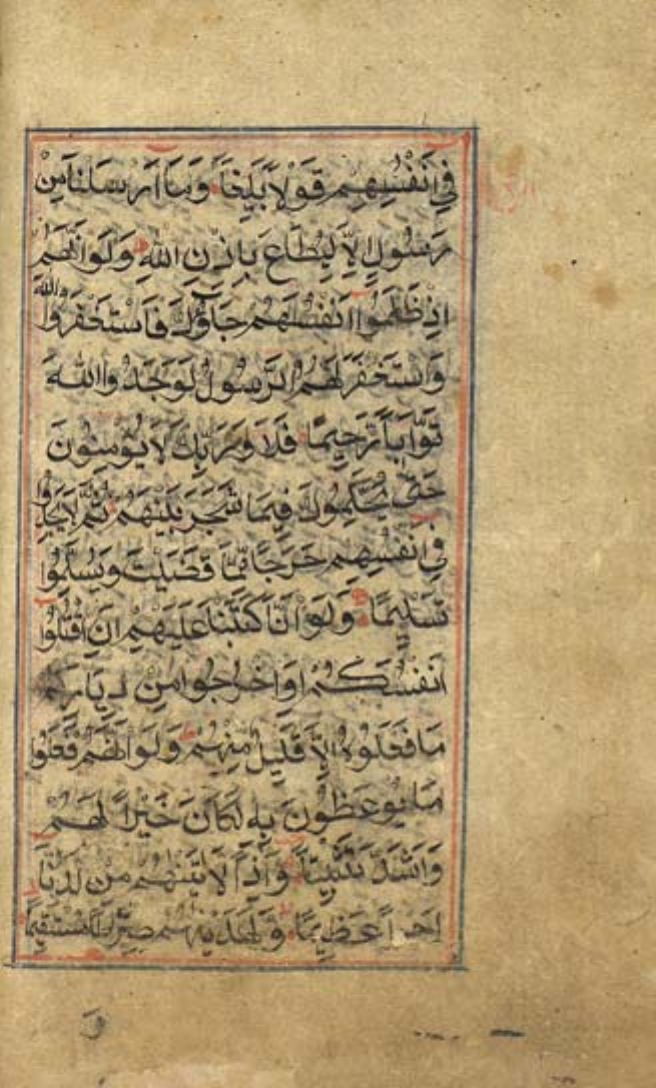 فِي أَنْفُسِهِمْ قَوْلًا بَلِيغًا وَمَا أَرْسَلْنَا مِنْ
رَسُولٍ إِلَّا لِيُطَاعَ بِإِذْنِ اللهِ وَلَوْ أَنَّهُمْ
إِذْ ظَلَمُوا أَنْفُسَهُمْ جَاؤُكَ فَاسْتَغْفَرُوا اللهَ
وَاسْتَغْفَرَ لَهُمُ الرَّسُولُ لَوَجَدُوا اللهَ
تَوَّابًا رَحِيمًا فَلَا وَرَبِّكَ لَا يُؤْمِنُونَ
حَتَّى يُحَكِّمُوكَ فِيمَا شَجَرَ بَيْنَهُمْ ثُمَّ لَا يَجِدُوا
فِي أَنْفُسِهِمْ حَرَجًا مِمَّا قَضَيْتَ وَيُسَلِّمُوا
تَسْلِيمًا وَلَوْ أَنَّا كَتَبْنَا عَلَيْهِمْ أَنِ اقْتُلُوا
أَنْفُسَكُمْ أَوِ اخْرُجُوا مِنْ دِيَارِكُمْ
مَا فَعَلُوهُ إِلَّا قَلِيلٌ مِنْهُمْ وَلَوْ أَنَّهُمْ فَعَلُوا
مَا يُوعَظُونَ بِهِ لَكَانَ خَيْرًا لَهُمْ
وَأَشَدَّ تَثْبِيتًا وَإِذًا لَآتَيْنَاهُمْ مِنْ لَدُنَّا
أَجْرًا عَظِيمًا وَلَهَدَيْنَاهُمْ صِرَاطًا مُسْتَقِيمًا